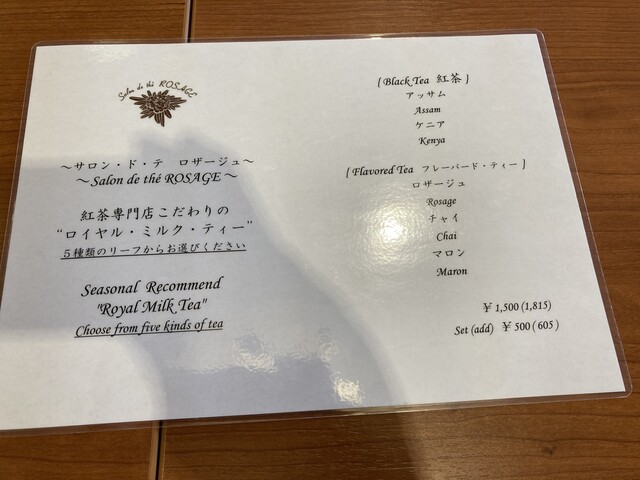 Salon de thé ROSAGE
～サロン・ド・テ ロザージュ～
～Salon de thé ROSAGE～
紅茶専門店こだわりの
“ロイヤル・ミルク・ティー”
５種類のリーフからお選びください
Seasonal Recommend
"Royal Milk Tea"
Choose from five kinds of tea
{ Black Tea 紅茶 }
アッサム
Assam
ケニア
Kenya
{ Flavored Tea フレーバード・ティー }
ロザージュ
Rosage
チャイ
Chai
マロン
Maron
￥1,500 (1,815)
Set (add) ￥500 ( 605 )